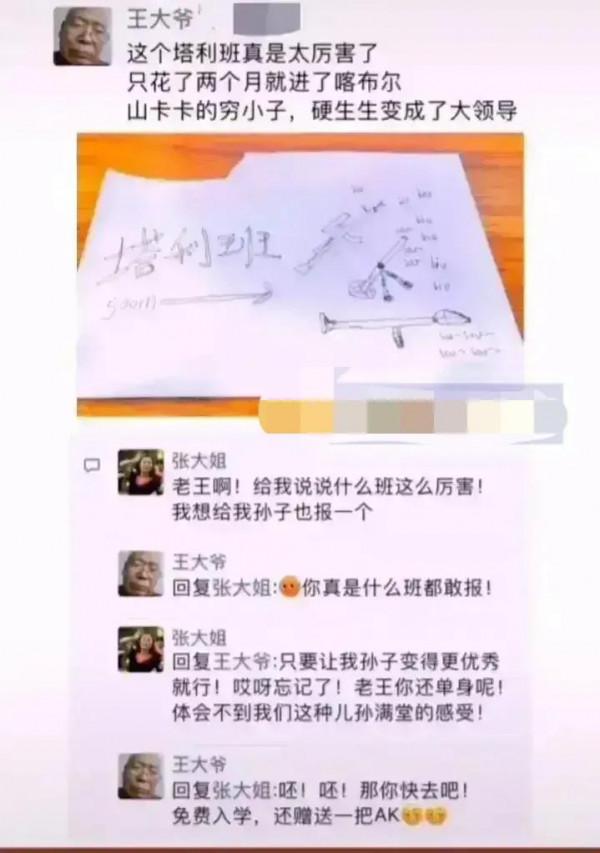 王大爷
这个塔利班真是太厉害了
只花了两个月就进了喀布尔
山卡卡的穷小子，硬生生变成了大领导
塔利班
张大姐
老王啊！给我说说什么班这么厉害！
我想给我孙子也报一个
王大爷
回复张大姐:😡你真是什么班都敢报！
张大姐
回复王大爷:只要让我孙子变得更优秀
就行！哎呀忘记了！老王你还单身呢！
体会不到我们这种儿孙满堂的感受！
王大爷
回复张大姐:呸！呸！那你快去吧！
免费入学，还赠送一把AK